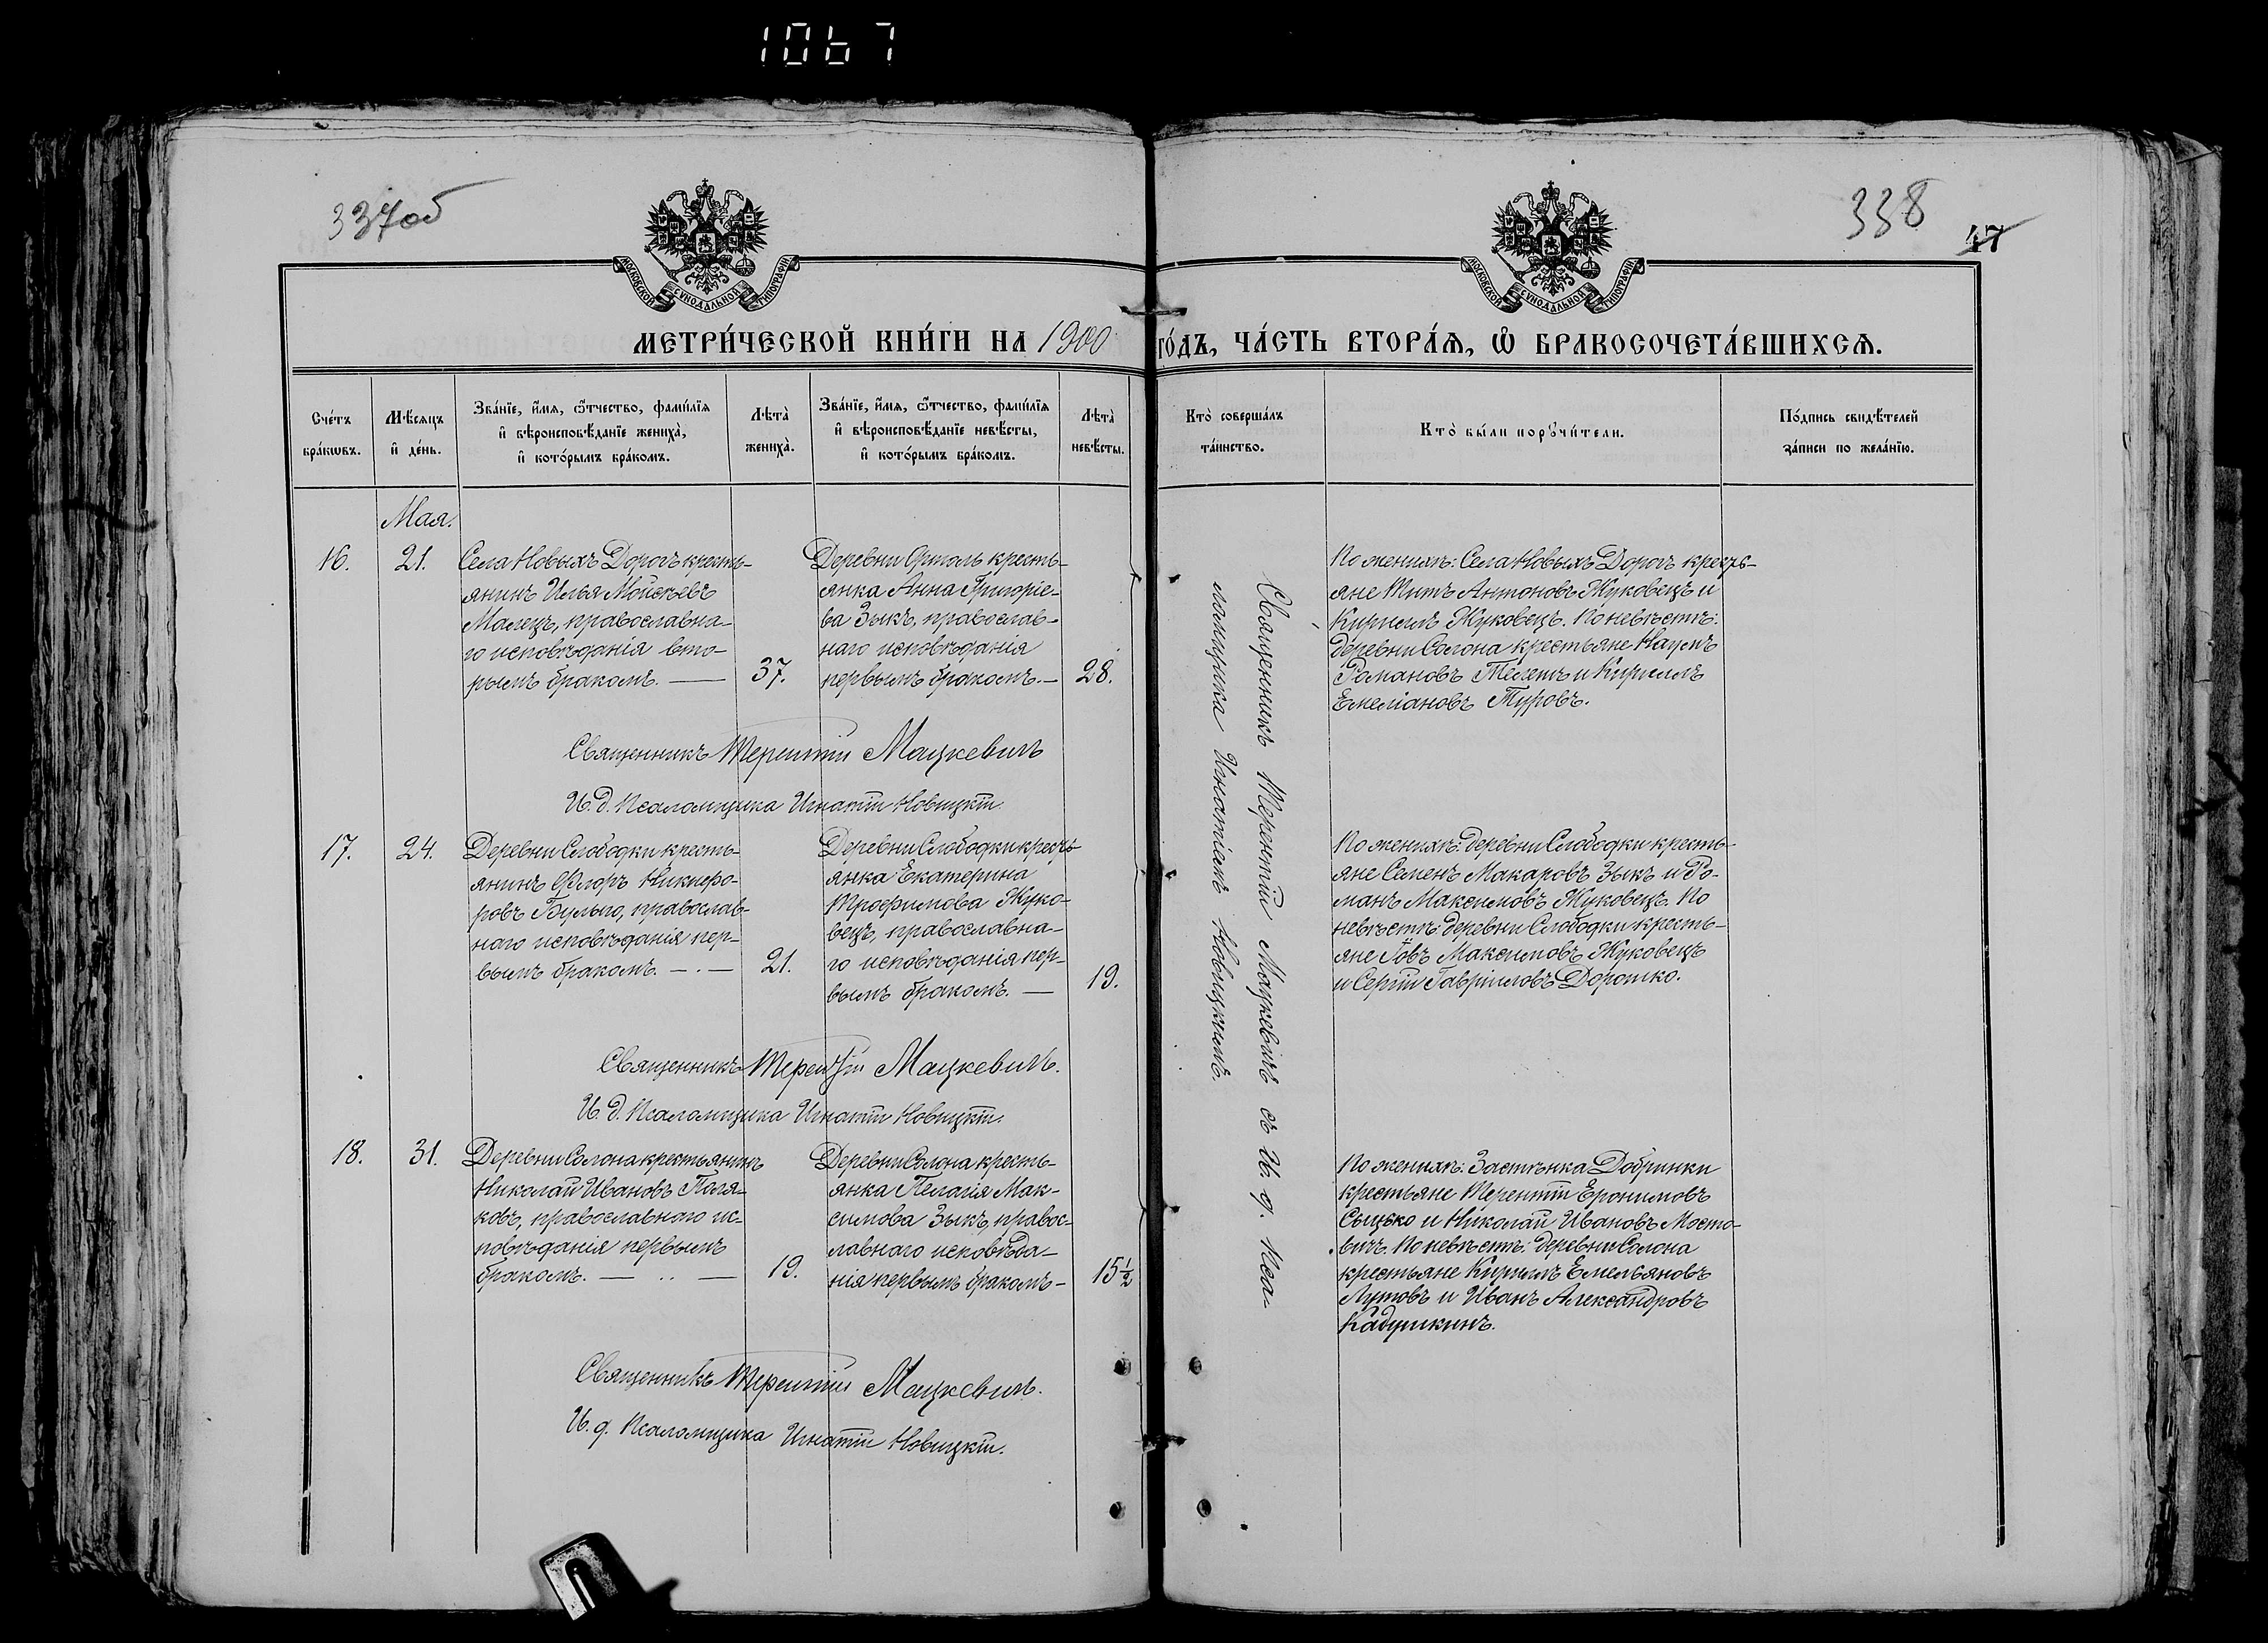 1067
337об
338
47
МОСКОВСКОЙ СѴНОДАЛЬНОЙ ТИПОГРАФІИ
МОСКОВСКОЙ СѴНОДАЛЬНОЙ ТИПОГРАФІИ
МЕТРИ́ЧЕСКОЙ КНИ́ГИ НА 1900 ГО́ДЪ, ЧА́СТЬ ВТОРА́Ѧ, Ѡ҆ БРАКОСОЧЕТА́ВШИХСѦ.
Сче́тъ
бра́кѡвъ.
Мѣ́сѧцъ
и҆ де́нь.
Зва́нїе, и҆́мѧ, ѻ҆́тчество, фами́лїѧ
и҆ вѣроисповѣ́данїе жениха̀,
и҆ кото́рымъ бра́комъ.
Лѣ́та
жениха̀.
Зва́нїе, и҆́мѧ, ѻ҆́тчество, фами́лїѧ
и҆ вѣроисповѣ́данїе невѣ́сты,
и҆ кото́рымъ бра́комъ.
Лѣ́та
невѣ́сты.
Кто̀ соверша́лъ
та́инство.
Кто̀ бы́ли порꙋчи́тели.
По́дпись свидѣ́телей
за́писи по жела́нїю.
Мая.
16.
21.
Села Новыхъ Дорогъ кресть-
янинъ Илья Моисѣевъ
Малецъ, православна-
го исповѣданія вто-
рымъ бракомъ. —
37.
Деревни кресть-
янка Анна Григоріе-
ва Зыкъ, православ-
наго исповѣданія
первымъ бракомъ. —
28.
По женихѣ: Села Новыхъ Дорогъ кресть-
яне Титъ Антоновъ Жуковецъ и
Кириллъ Жуковецъ. По невѣстѣ:
деревни Солона крестьяне Наумъ
Романовъ и Кириллъ
Емеліановъ Туровъ.
Священникъ Терентій Мацкевичъ
И. д. Псаломщика Игнатій Новицкій.
17.
24.
Деревни Слободки кресть-
янинъ Флоръ Никифо-
ровъ Булыго, православ-
наго исповѣданія пер-
вымъ бракомъ. — . —
21.
Деревни Слободки кресть-
янка Екатерина
Трофимова Жуко-
вецъ, православна-
го исповѣданія пер-
вымъ бракомъ. —
19.
По женихѣ: деревни Слободки кресть-
яне Семенъ Макаровъ Зыкъ и Ро-
манъ Максимовъ Жуковецъ. По
невѣстѣ: деревни Слободки кресть-
яне Іовъ Максимовъ Жуковецъ
и Сергій Гавріиловъ Дорошко.
Священникъ Терентій Мацкевичъ.
И. д. Псаломщика Игнатій Новицкій.
18.
31.
Деревни Солона крестьянинъ
Николай Ивановъ Поля-
ковъ, православнаго ис-
повѣданія первымъ
бракомъ. — .. —
19.
Деревни Солона кресть-
янка Пелагія Мак-
симова Зыкъ, правос-
лавнаго исповѣда-
нія первымъ бракомъ —
15½
По женихѣ: Застѣнка Добринки
крестьяне Терентій Еронимовъ
Сыцько и Николай Ивановъ Мосто-
вичъ. По невѣстѣ: деревни Солона
крестьяне Кириллъ Емельяновъ
Лутовъ и Иванъ Александровъ
Кадушкинъ.
Священникъ Терентій Мацкевичъ.
И. д. Псаломщика Игнатій Новицкій.
Священникъ Терентій Мацкевичъ съ И. д. Пса-
ломщика Игнатіемъ Новицкимъ.